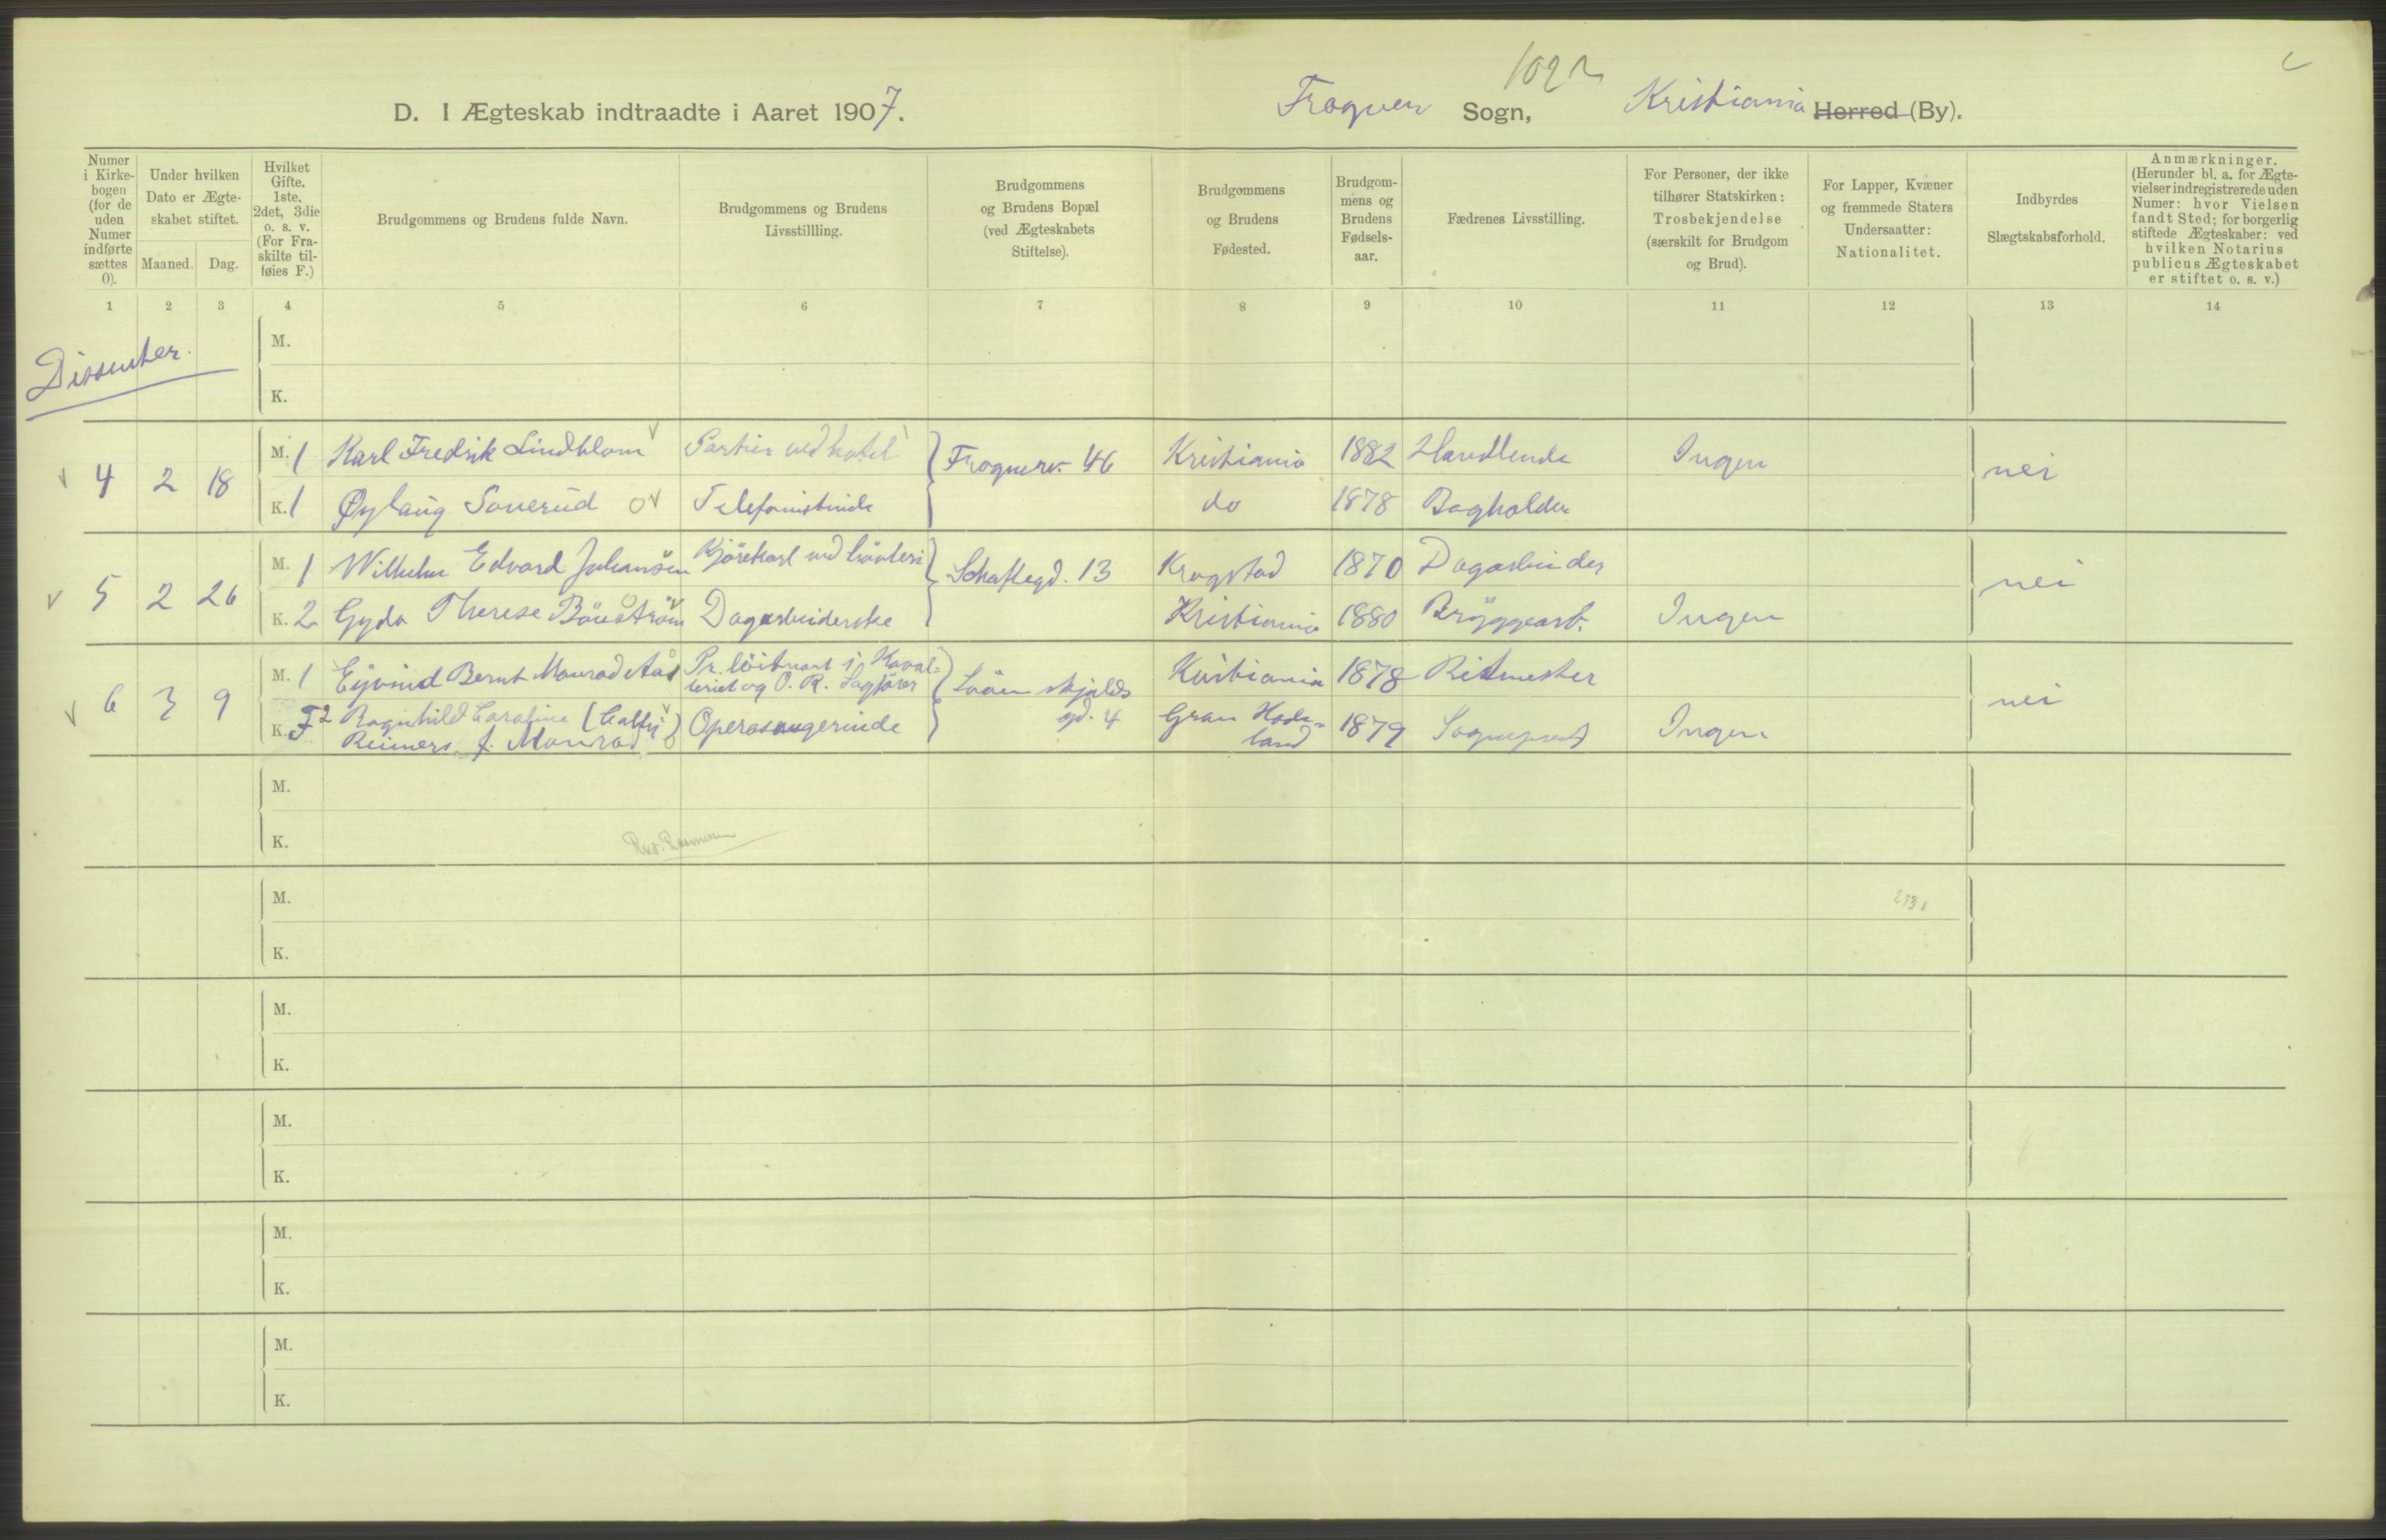 102
D. I Ægteskab indtraadte i Aaret 1907. Frogner Sogn, Kristiania Herred (By).
Numer i Kirke-bogen (for de uden Numer indførte sættes 0).
Under hvilken Dato er Ægte-skabet stiftet.
Maaned. Dag.
Hvilket Gifte. 1ste, 2det, 3die o. s. v. (For Fra-skilte til-føies F.)
Brudgommens og Brudens fulde Navn.
Brudgommens og Brudens Livsstillling.
Brudgommens og Brudens Bopæl (ved Ægteskabets Stiftelse).
Brudgommens og Brudens Fødested.
Brudgom-mens og Brudens Fødsels-aar.
Fædrenes Livsstilling.
For Personer, der ikke tilhører Statskirken: Trosbekjendelse (særskilt for Brudgom og Brud).
For Lapper, Kvæner og fremmede Staters Undersaatter: Nationalitet.
Indbyrdes Slægtskabsforhold.
Anmærkninger. (Herunder bl. a. for Ægte-vielser indregistrerede uden Numer: hvor Vielsen fandt Sted; for borgerlig stiftede Ægteskaber: ved hvilken Notarius publicus Ægteskabet er stiftet o. s. v.)
1 2 3 4 5 6 7 8 9 10 11 12 13 14
Dissenter.
M.
K.
4 2 18 M. 1 Karl Fredrik Lindblom Portier ved hotel Frognerv. 46 Kristiania 1882 Handlende Ingen nei
K. 1 Øylaug Sonerud Telefonistinde do 1878 Bogholder
5 2 26 M. 1 Wilhelm Edvard Johansen Kjörekarl ved Schaftegd. 13 Krogstad 1870 Dagarbeider nei
K. 2 Gyda Therese Dagarbeiderske Kristiania 1880 Bryggearb. Ingen
6 3 9 M. 1 Eyvind Bernt Monrad Aas Pr. löitnant i Kaval-
leriet og O. R. Sagförer skjolds
gd. 4 Kristiania 1878 Ritmester nei
K. F2 Ragnhild Caroline (Cally)
Reimers f. Monrad Operasangerinde Gran Hade-
land 1879 Sogneprest Ingen
M.
K.
M.
K.
M.
K.
M.
K.
M.
K.
M.
K.